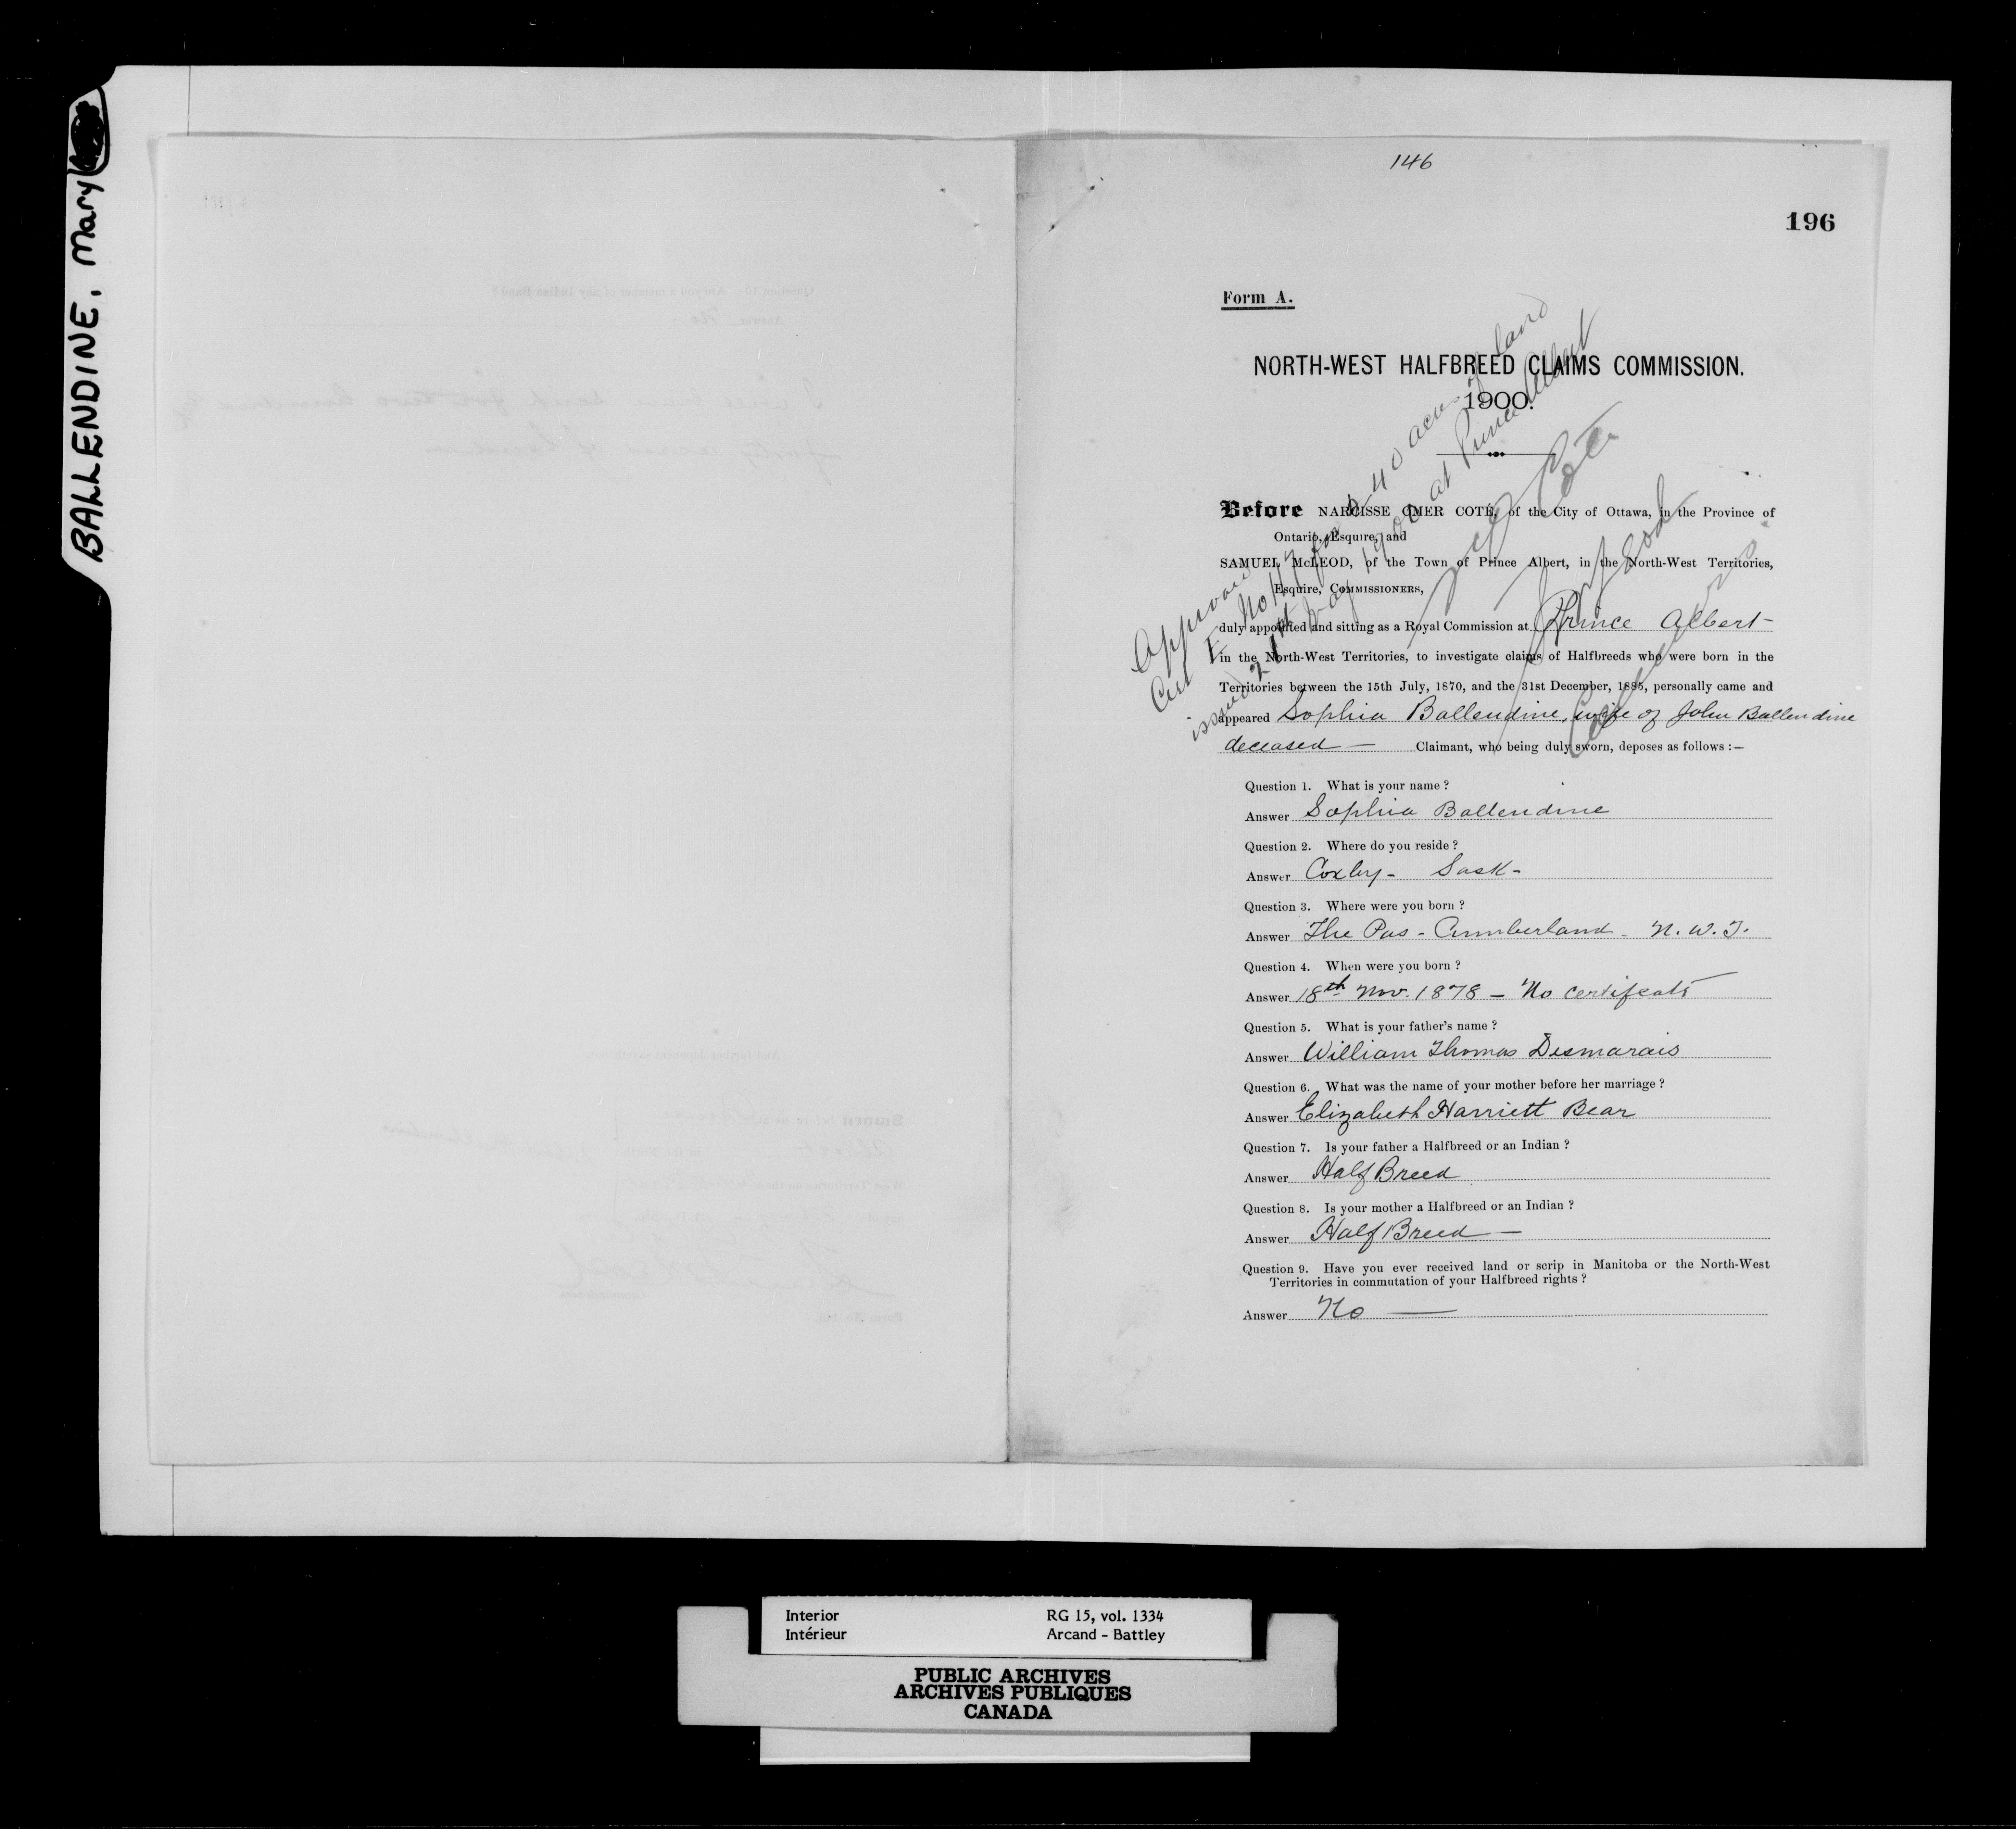 BALLENDINE, Mary
146
196
Form A.
NORTH-WEST HALFBREED CLAIMS COMMISSION.
1900.
Approved
Cert E No 147 for 240 acres of land
issued 21st May 1900 at Prince Albert
Before NARCISSE OMER COTÉ, of the City of Ottawa, in the Province of
Ontario, Esquire, and
SAMUEL McLEOD, of the Town of Prince Albert, in the North-West Territories,
Esquire, COMMISSIONERS,
duly appointed and sitting as a Royal Commission at Prince Albert
in the North-West Territories, to investigate claims of Halfbreeds who were born in the
Territories between the 15th July, 1870, and the 31st December, 1885, personally came and
appeared Sophia Ballendine, wife of John Ballendine
deceased — Claimant, who being duly sworn, deposes as follows :—
Question 1. What is your name ?
Answer Sophia Ballendine
Question 2. Where do you reside ?
Answer Coxby - Sask -
Question 3. Where were you born ?
Answer The Pas - Cumberland - N. W. T.
Question 4. When were you born ?
Answer 18th Nov. 1878 — No certificate
Question 5. What is your father's name ?
Answer William Thomas Desmarais
Question 6. What was the name of your mother before her marriage ?
Answer Elizabeth Harriett Bear
Question 7. Is your father a Halfbreed or an Indian ?
Answer Half Breed
Question 8. Is your mother a Halfbreed or an Indian ?
Answer Half Breed —
Question 9. Have you ever received land or scrip in Manitoba or the North-West
Territories in commutation of your Halfbreed rights ?
Answer No —
Interior
Intérieur
RG 15, vol. 1334
Arcand - Battley
PUBLIC ARCHIVES
ARCHIVES PUBLIQUES
CANADA